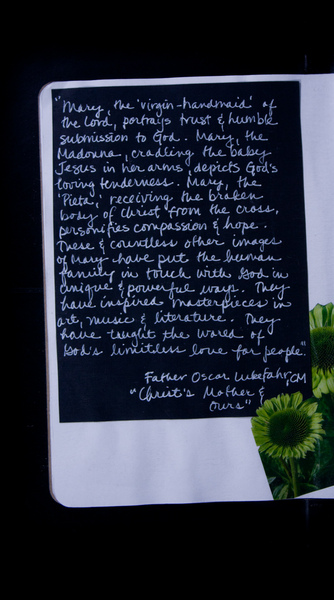 "Mary, the 'virgin-handmaid' of
the Lord, portrays trust & humble
submission to God. Mary, the
Madonna, cradling the baby
Jesus in her arms, depicts God's
loving tenderness. Mary, the
'Pieta,' receiving the broken
body of Christ from the cross,
personifies compassion & hope.
These & countless other images
of Mary have put the human
family in touch with God in
unique & powerful ways. They
have inspired masterpieces in
art, music & literature. They
have taught the world of
God's limitless love for people."
Father Oscar Lukefahr, CM
"Christ's Mother &
Ours"